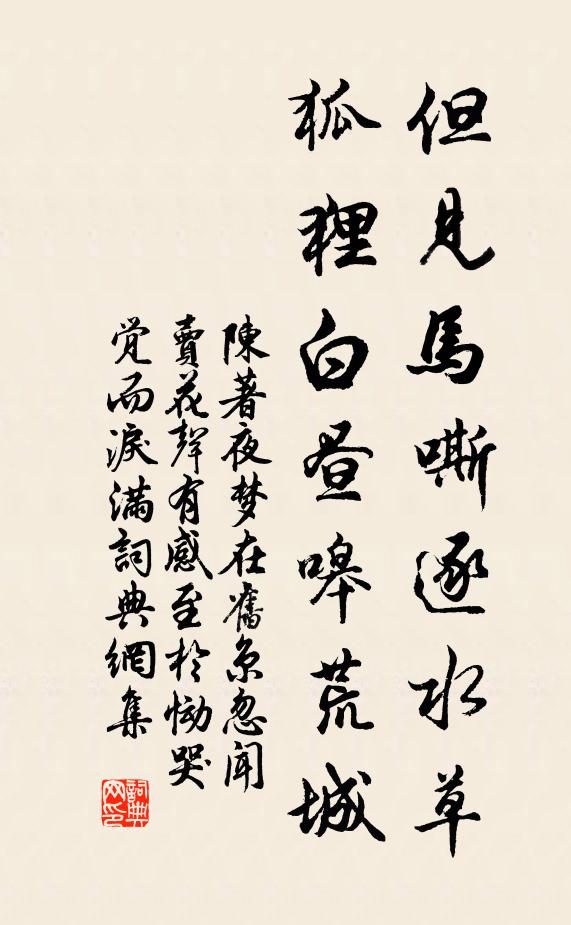 但見馬嘶逐水草
狐狸白昼嗥荒城
陳著夜梦在舊京忽聞
賣花聲有感至於恸哭
覚而淚满詞典網集
詞典网印